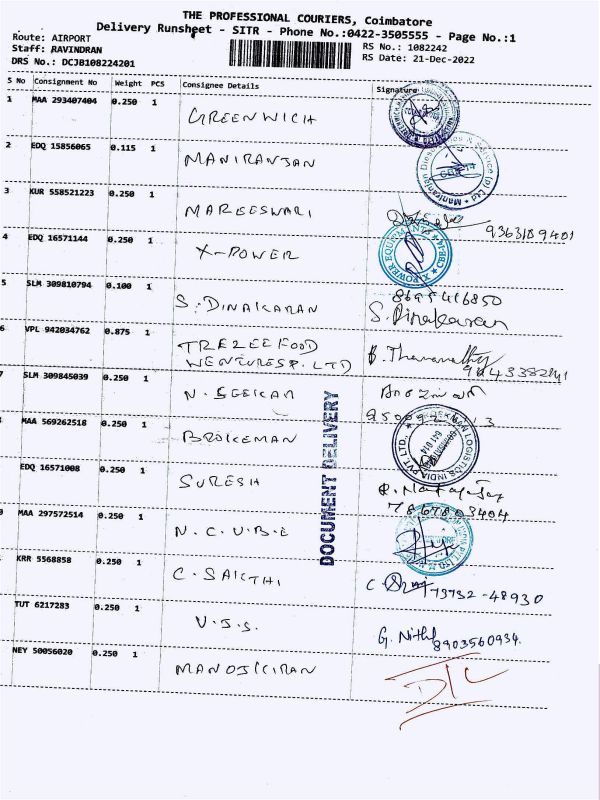 THE PROFESSIONAL COURIERS, Coimbatore
Delivery Runsheet - SITR - Phone No.:0422-3505555 - Page No.:1
Route: AIRPORT
Staff: RAVINDRAN
DRS No.: DCJB108224201
RS No.: 1082242
RS Date: 21-Dec-2022
S No Consignment No Weight PCS Consignee Details Signature
1 MAA 293407404 0.250 1 GREENWICH
2 EDQ 15856065 0.115 1 MANIRANJAN
3 KUR 558521223 0.250 1 MAREESWARI 9363189401
4 EDQ 16571144 0.250 1 X-POWER
X POWER EQUIPMENTS CBE-14
5 SLM 309810794 0.100 1 S. DINAKARAN 8695416850
S. Dinakaran
6 VPL 942034762 0.875 1 TREZEE FOOD
VENTURES P. LTD
7 SLM 309845039 0.250 1 N. SEEKAR
MAA 569262518 0.250 1 BROKEMAN
LOGISTICS INDIA PVT LTD.
641 014
EDQ 16571008 0.250 1 SURESH
7867803404
MAA 297572514 0.250 1 N.C.U.B.E
KRR 5568858 0.250 1 C. SAKTHI 73732-48930
TUT 6217283 0.250 1 V.J.S. G. Nithl
8903560934
NEY 50056020 0.250 1 MANOJKIRAN
DOCUMENT DELIVERY